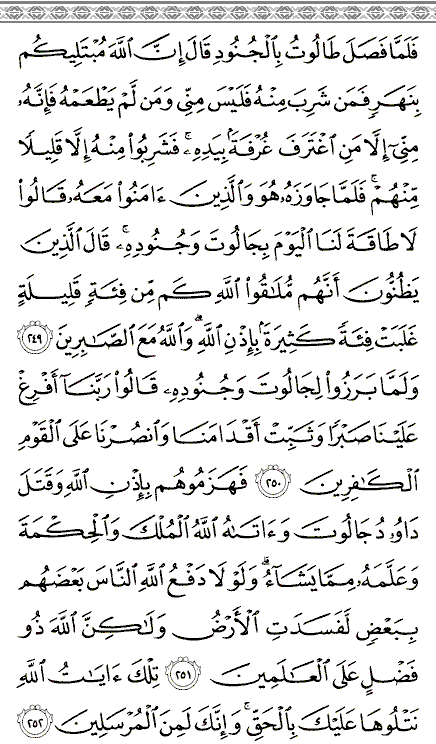 فَلَمَّا فَصَلَ طَالُوتُ بِٱلْجُنُودِ قَالَ إِنَّ ٱللَّهَ مُبْتَلِيكُم
بِنَهَرٍ فَمَن شَرِبَ مِنْهُ فَلَيْسَ مِنِّي وَمَن لَّمْ يَطْعَمْهُ فَإِنَّهُۥ
مِنِّيٓ إِلَّا مَنِ ٱغْتَرَفَ غُرْفَةَۢ بِيَدِهِۦۚ فَشَرِبُوا۟ مِنْهُ إِلَّا قَلِيلًا
مِّنْهُمْۚ فَلَمَّا جَاوَزَهُۥ هُوَ وَٱلَّذِينَ ءَامَنُوا۟ مَعَهُۥ قَالُوا۟
لَا طَاقَةَ لَنَا ٱلْيَوْمَ بِجَالُوتَ وَجُنُودِهِۦۚ قَالَ ٱلَّذِينَ
يَظُنُّونَ أَنَّهُم مُّلَٰقُوا۟ ٱللَّهِ كَم مِّن فِئَةٍ قَلِيلَةٍ
غَلَبَتْ فِئَةً كَثِيرَةَۢ بِإِذْنِ ٱللَّهِۗ وَٱللَّهُ مَعَ ٱلصَّٰبِرِينَ ٢٤٩
وَلَمَّا بَرَزُوا۟ لِجَالُوتَ وَجُنُودِهِۦ قَالُوا۟ رَبَّنَآ أَفْرِغْ
عَلَيْنَا صَبْرًا وَثَبِّتْ أَقْدَامَنَا وَٱنصُرْنَا عَلَى ٱلْقَوْمِ
ٱلْكَٰفِرِينَ ٢٥٠ فَهَزَمُوهُم بِإِذْنِ ٱللَّهِ وَقَتَلَ
دَاوُۥدُ جَالُوتَ وَءَاتَىٰهُ ٱللَّهُ ٱلْمُلْكَ وَٱلْحِكْمَةَ
وَعَلَّمَهُۥ مِمَّا يَشَآءُۗ وَلَوْلَا دَفْعُ ٱللَّهِ ٱلنَّاسَ بَعْضَهُم
بِبَعْضٍ لَّفَسَدَتِ ٱلْأَرْضُ وَلَٰكِنَّ ٱللَّهَ ذُو
فَضْلٍ عَلَى ٱلْعَٰلَمِينَ ٢٥١ تِلْكَ ءَايَٰتُ ٱللَّهِ
نَتْلُوهَا عَلَيْكَ بِٱلْحَقِّۚ وَإِنَّكَ لَمِنَ ٱلْمُرْسَلِينَ ٢٥٢